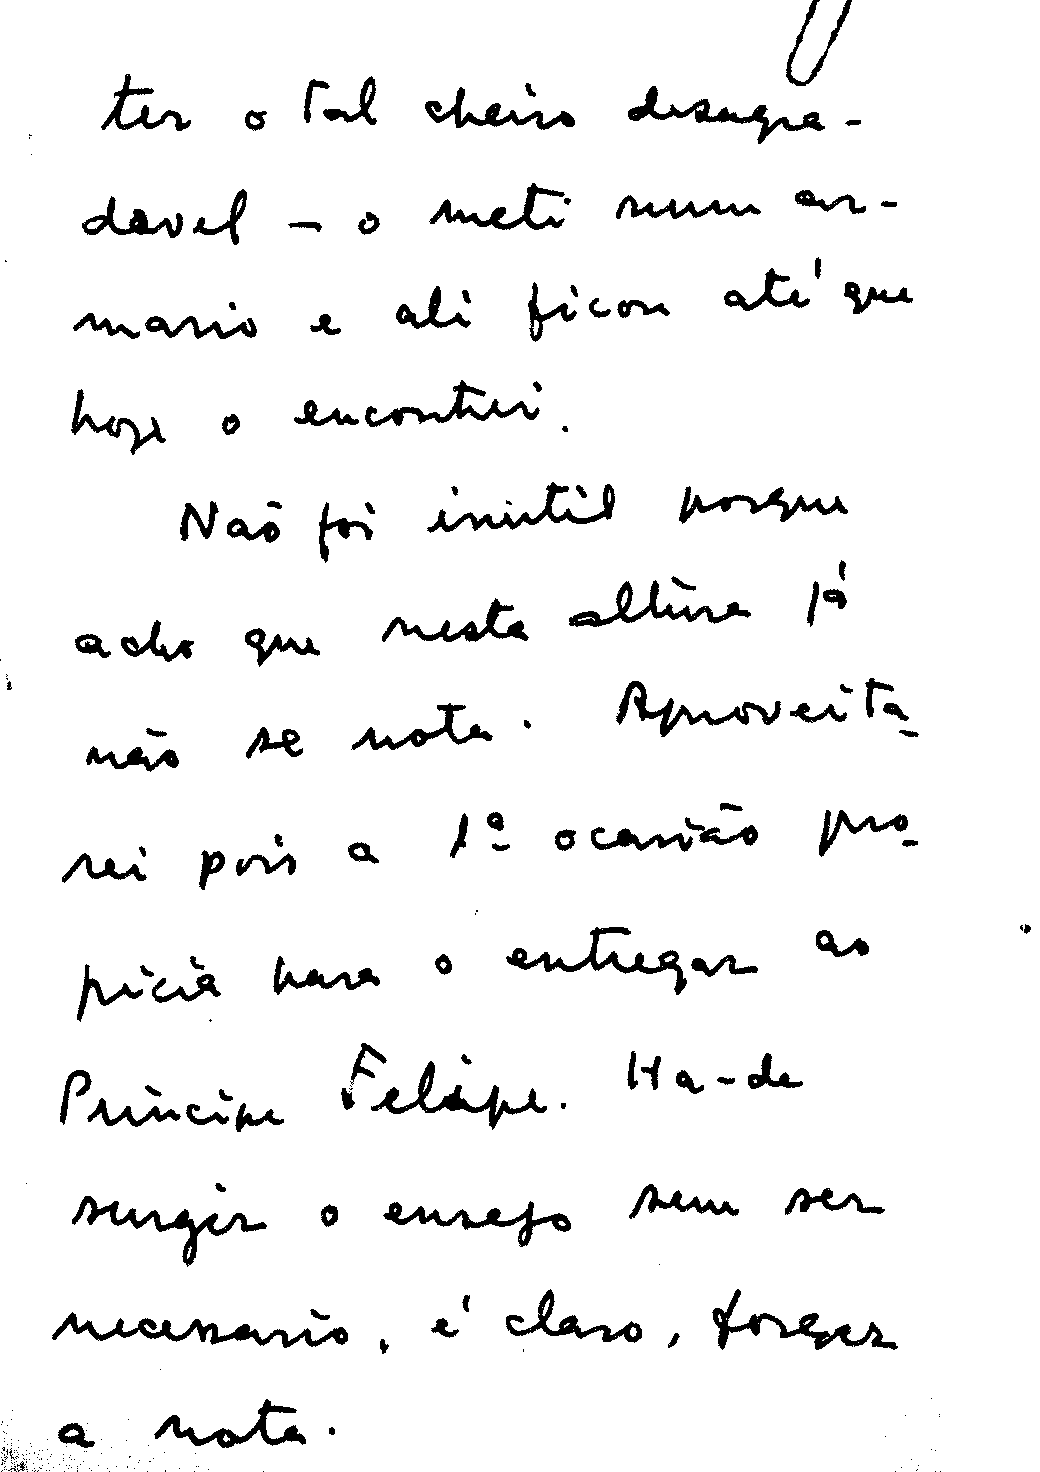 ter o tal cheiro desagra-
davel – o meti num ar-
mario e ali ficou até que
hoje o encontrei.
Não foi inutil porque
acho que nesta altura já
não se nota. Aproveita-
rei pois a 1ª ocasião pro-
picia para o entregar ao
Principe Felipe. Ha-de
surgir o ensejo sem ser
necessario, é claro, forçar
a nota.